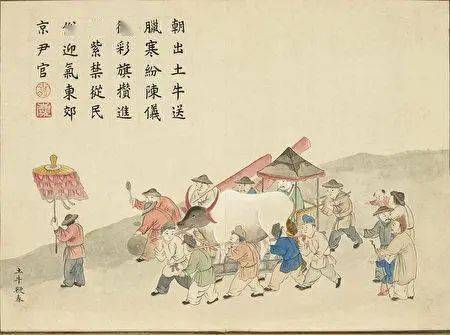 朝出土牛送
臘寒紛陳儀
彩旗攢進
紫禁從民
迎氣東郊
京尹官
土牛鞭春